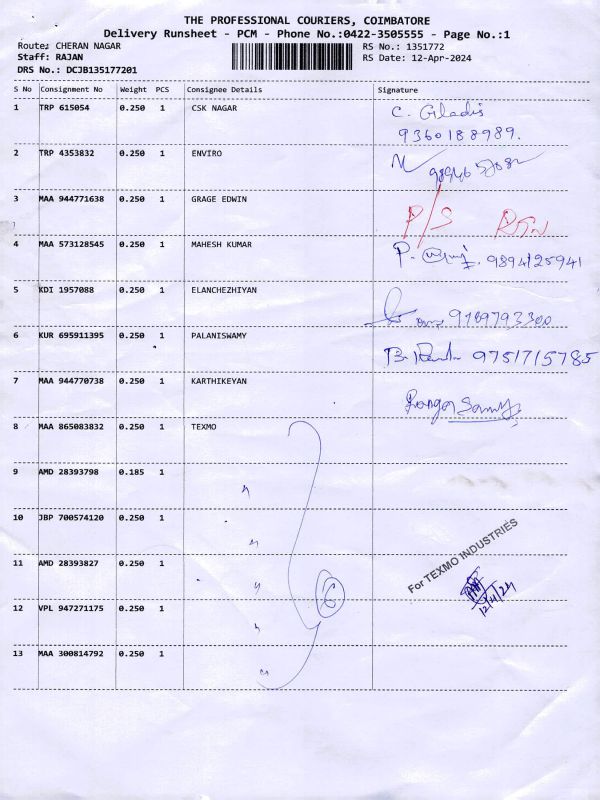 THE PROFESSIONAL COURIERS, COIMBATORE
Delivery Runsheet - PCM - Phone No.:0422-3505555 - Page No.:1
Route: CHERAN NAGAR RS No.: 1351772
Staff: RAJAN RS Date: 12-Apr-2024
DRS No.: DCJB135177201
S No Consignment No Weight PCS Consignee Details Signature
1 TRP 615054 0.250 1 CSK NAGAR C. Gladis
9360188989.
2 TRP 4353832 0.250 1 ENVIRO
3 MAA 944771638 0.250 1 GRAGE EDWIN P/S
4 MAA 573128545 0.250 1 MAHESH KUMAR P. 9894125941
5 KDI 1957088 0.250 1 ELANCHEZHIYAN 9789793300
6 KUR 695911395 0.250 1 PALANISWAMY 9751715785
7 MAA 944770738 0.250 1 KARTHIKEYAN Ranga Samy
8 MAA 865083832 0.250 1 TEXMO
9 AMD 28393798 0.185 1
10 JBP 700574120 0.250 1
For TEXMO INDUSTRIES
11 AMD 28393827 0.250 1
12/4/24
12 VPL 947271175 0.250 1
13 MAA 300814792 0.250 1